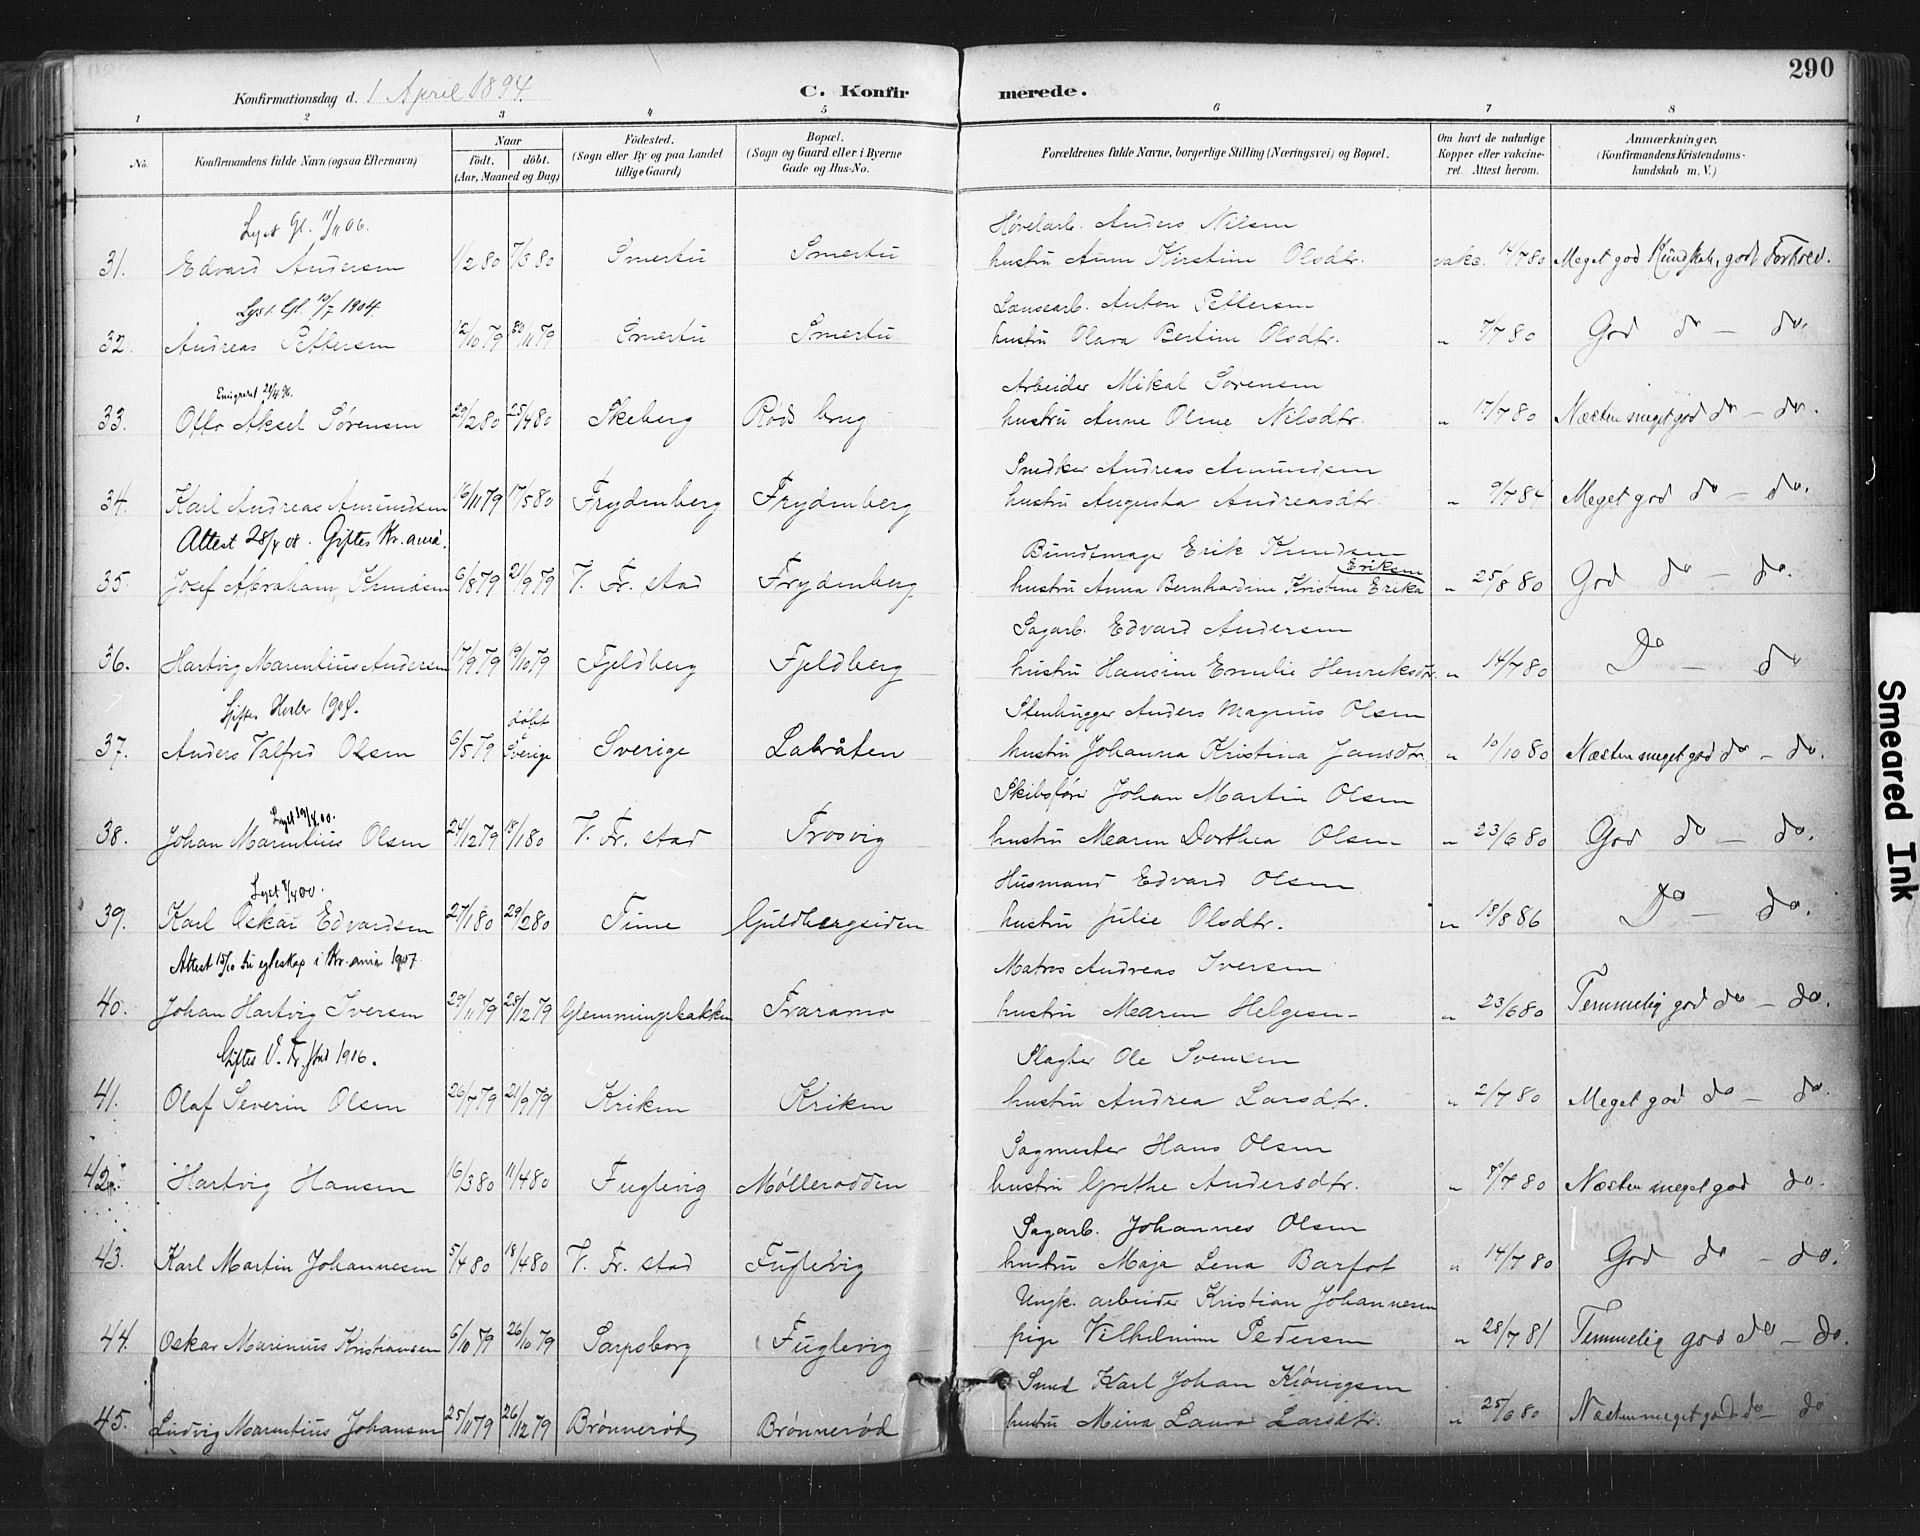 290
Konfirmationsdag d. 1 April 1894.
C. Konfirmerede.
1 2 3 4 5 6 7 8
No. Konfirmandens fulde Navn (ogsaa Efternavn) Naar födt. döbt. (Aar, Maaned og Dag) Födested. (Sogn eller By og paa Landet tillige Gaard) Bopæl. (Sogn og Gaard eller i Byerne Gade og Hus-No. Forældrenes fulde Navne, borgerlige Stilling (Næringsvei) og Bopæl. Om havt de naturlige Kopper eller vakcineret. Attest herom. Anmærkninger, (Konfirmandens Kristendomskundskab m. V.)
Lyst Gl. 11/11 06.
Anders Nilsen
31. Edvard Andersen 1/2 80 7/3 80 Smertu Smertu hustru Anne Kirstine Olsdtr. vakc. 14/7 80 Meget god Kundskab, god Forhold.
Lyst. Gl. 10/7 1904
Lænsearb. Anton Pettersen
32. Andreas Pettersen 12/10 79 30/11 79 Smertu Smertu hustru Olava Bertine Olsdtr. " 7/7 80 God do – do.
Emigreret 24/4 96.
Arbeider Mikal Sørensen
33. Otto Aksel Sørensen 29/2 80 25/4 80 Skeberg Røds brug hustru Anne Oline Nilsdtr. " 17/7 80 Næsten meget god do – do.
Snedker Andreas Amundsen
34. Karl Andreas Amundsen 16/11 79 17/5 80 Frydenberg Frydenberg hustru Augusta Andreasdtr. " 9/7 84 Meget god do – do.
Attest 28/4 08. Giftes Kr.ania.
Bundtmager Erik Knudsen
Eriksen
35. Josef Abraham Knudsen 6/8 79 21/9 79 V. Fr. stad Frydenberg hustru Anna Bernhardine Kristine Erika " 25/8 80 God do – do.
Sagarb. Edvard Andersen
36. Hartvig Marentius Andersen 17/9 79 19/10 79 Fjeldberg Fjeldberg hustru Hansine Emilie Henriksdtr. " 14/7 80 Do – do
Giftes 1908.
Stenhugger Anders Magnus Olsen
37. Anders Valfred Olsen 6/5 79 døbt i Sverige Sverige Labråten hustru Johanna Kristina Jansdtr. " 10/10 80 Næsten meget god do – do.
Lyst 19/4 00.
Skibsfører Johan Martin Olsen
38. Johan Marentius Olsen 24/12 79 18/1 80 V. Fr. stad Trosvig hustru Maren Dorthea Olsen " 23/6 80 God do – do.
Lyst 8/4 00.
Husmand Edvard Olsen
39. Karl Oskar Edvardsen 27/1 80 29/2 80 Time Guldbergsiden hustru Julie Olsdtr. " 18/8 86 Do – do.
Attest 15/10 til egteskap i Kr.ania 1907
Matros Andreas Iversen
40. Johan Hartvig Iversen 29/11 79 28/12 79 Glemmingebakken Traramo hustru Maren Helgesen " 23/6 80 Temmelig god do – do.
Giftes V. Fr.stad 1906.
Slagter Ole Svensen
41. Olaf Severin Olsen 26/7 79 21/9 79 Kriken Kriken hustru Andrea Larsdtr. " 2/7 80 Meget god do – do.
Sagmester Hans Olsen
42. Hartvig Hansen 16/3 80 11/4 80 Fuglevig Mølleradden hustru Grethe Andersdtr. " 7/7 80 Næsten meget god do.
Sagarb. Johannes Olsen
43. Karl Martin Johannesen 5/4 80 18/4 80 V. Fr. stad Fuglevig hustru Maja Lena Barfot " 14/7 80 God do – do.
Ungk. arbeider Kristian Johannesen
44. Oskar Marinius Kristiansen 6/10 79 26/10 79 Sarpsborg Fuglevig pige Vilhelmine Pedersen " 28/7 81 Temmelig god do – do.
Smed Karl Johan Kiønigsen
45. Ludvig Marentius Johansen 25/11 79 26/12 79 Brønnerød Brønnerød hustru Mina Laura Larsdtr. " 25/6 80 Næsten meget god do – do
Smeared Ink